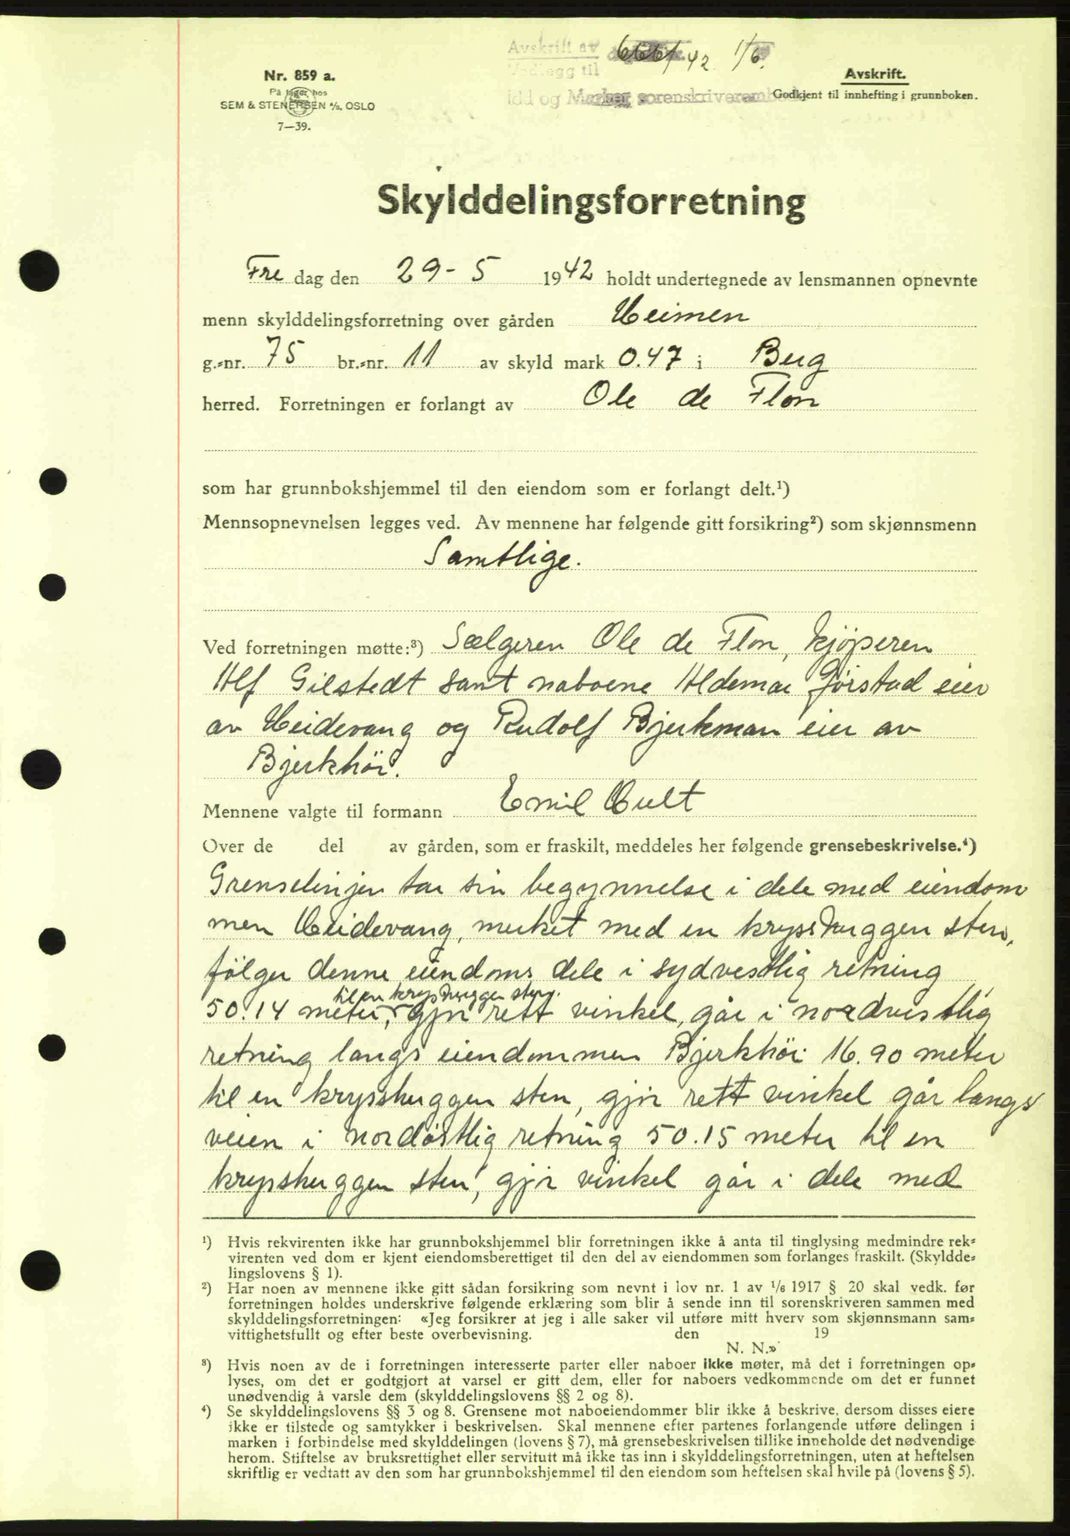 Avskrift av 666/42 1/6.
Vedlegg til
Idd og Marker sorenskriverembede
Nr. 859 a.
På lager hos
SEM & STENERSEN A/S, OSLO
7—39.
Avskrift.
Godkjent til innhefting i grunnboken.
Skylddelingsforretning
Fre dag den 29-5 1942 holdt undertegnede av lensmannen opnevnte
menn skylddelingsforretning over gården Heimen
g.-nr. 75 br.-nr. 11 av skyld mark 0.47 i Berg
herred. Forretningen er forlangt av Ole de Flon
som har grunnbokshjemmel til den eiendom som er forlangt delt.¹)
Mennsopnevnelsen legges ved. Av mennene har følgende gitt forsikring²) som skjønnsmenn
Samtlige.
Ved forretningen møtte:³) Sælgeren Ole de Flon, kjøperen
Alf Gilstedt samt naboene Aldemar Gjøistad eier
av Heidevang og Rudolf Bjerkman eier av
Bjerkhöi.
Mennene valgte til formann Emil Hult
Over de del av gården, som er fraskilt, meddeles her følgende grensebeskrivelse.⁴)
Grenselinjen tar sin begynnelse i dele med eiendom
men Heidevang, merket med en krysshuggen sten,
følger denne eiendoms dele i sydvestlig retning
50.14 meter, til en krysshuggen sten. gjør rett vinkel, går i nordvestlig
retning langs eiendommen Bjerkhöi 16.90 meter
til en krysshuggen sten, gjør rett vinkel går langs
veien i nordøstlig retning 50.15 meter til en
krysshuggen sten, gjør vinkel går i dele med
¹) Hvis rekvirenten ikke har grunnbokshjemmel blir forretningen ikke å anta til tinglysing medmindre rek-
virenten ved dom er kjent eiendomsberettiget til den del av eiendommen som forlanges fraskilt. (Skyldde-
lingslovens § 1).
²) Har noen av mennene ikke gitt sådan forsikring som nevnt i lov nr. 1 av 1/6 1917 § 20 skal vedk. før
forretningen holdes underskrive følgende erklæring som blir å sende inn til sorenskriveren sammen med
skylddelingsforretningen: «Jeg forsikrer at jeg i alle saker vil utføre mitt hverv som skjønnsmann sam-
vittighetsfullt og efter beste overbevisning. den 19
N. N.»
³) Hvis noen av de i forretningen interesserte parter eller naboer ikke møter, må det i forretningen op-
lyses, om det er godtgjort at varsel er gitt dem, eller for naboers vedkommende om det er funnet
unødvendig å varsle dem (skylddelingslovens §§ 2 og 8).
⁴) Se skylddelingslovens §§ 3 og 8. Grensene mot naboeiendommer blir ikke å beskrive, dersom disses eiere
ikke er tilstede og samtykker i beskrivelsen. Skal mennene efter partenes forlangende utføre delingen i
marken i forbindelse med skylddelingen (lovens § 7), må grensebeskrivelsen tillike inneholde det nødvendige
herom. Stiftelse av bruksrettighet eller servitutt må ikke tas inn i skylddelingsforretningen, uten at heftelsen
skriftlig er vedtatt av den som har grunnbokshjemmel til den eiendom som heftelsen skal hvile på (lovens § 5).